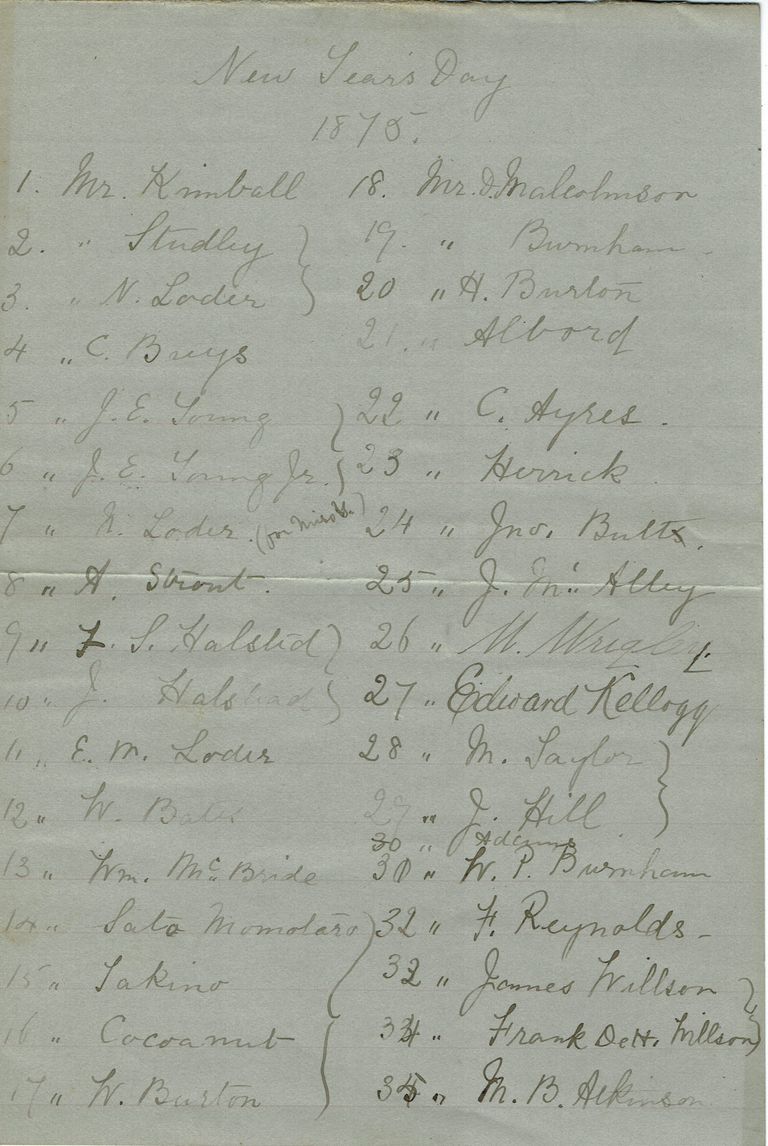 New Year's Day
1875.
1. Mr. Kimball
2. " Studley
3. " N. Loder
4 " C. Buys
5 " J. E. Young
6 " J. E. Young Jr.
7 " N. Loder. (for
8 " A. Strout.
9 " F. S. Halsted
10 " J. Halstead
11 " E. M. Loder
12 " W. Bates
13 " Wm. McBride
14 " Sato Momotaro
15 " Takino
16 " Cocoanut
17 " W. Burton
18. Mr. D. Malcolmson
19. " Burnham
20 " H. Burton
21. " Albord
22 " C. Ayres.
23 " Herrick
24 " Jno. Butts.
25 " J. Mc Alley
26 " M. Wrigley.
27 " Edward Kellogg
28 " M. Taylor
29 " J. Hill
30 " Adams
30 " W. P. Burnham
32 " F. Reynolds -
33 " James Willson
34 " Frank DeH. Willson
35 " M. B. Atkinson